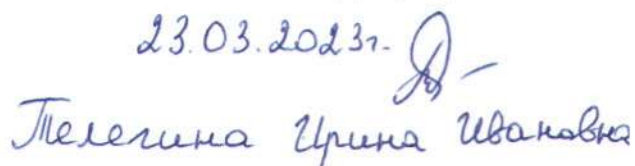 23.03.2023г.
Телегина Ирина Ивановна